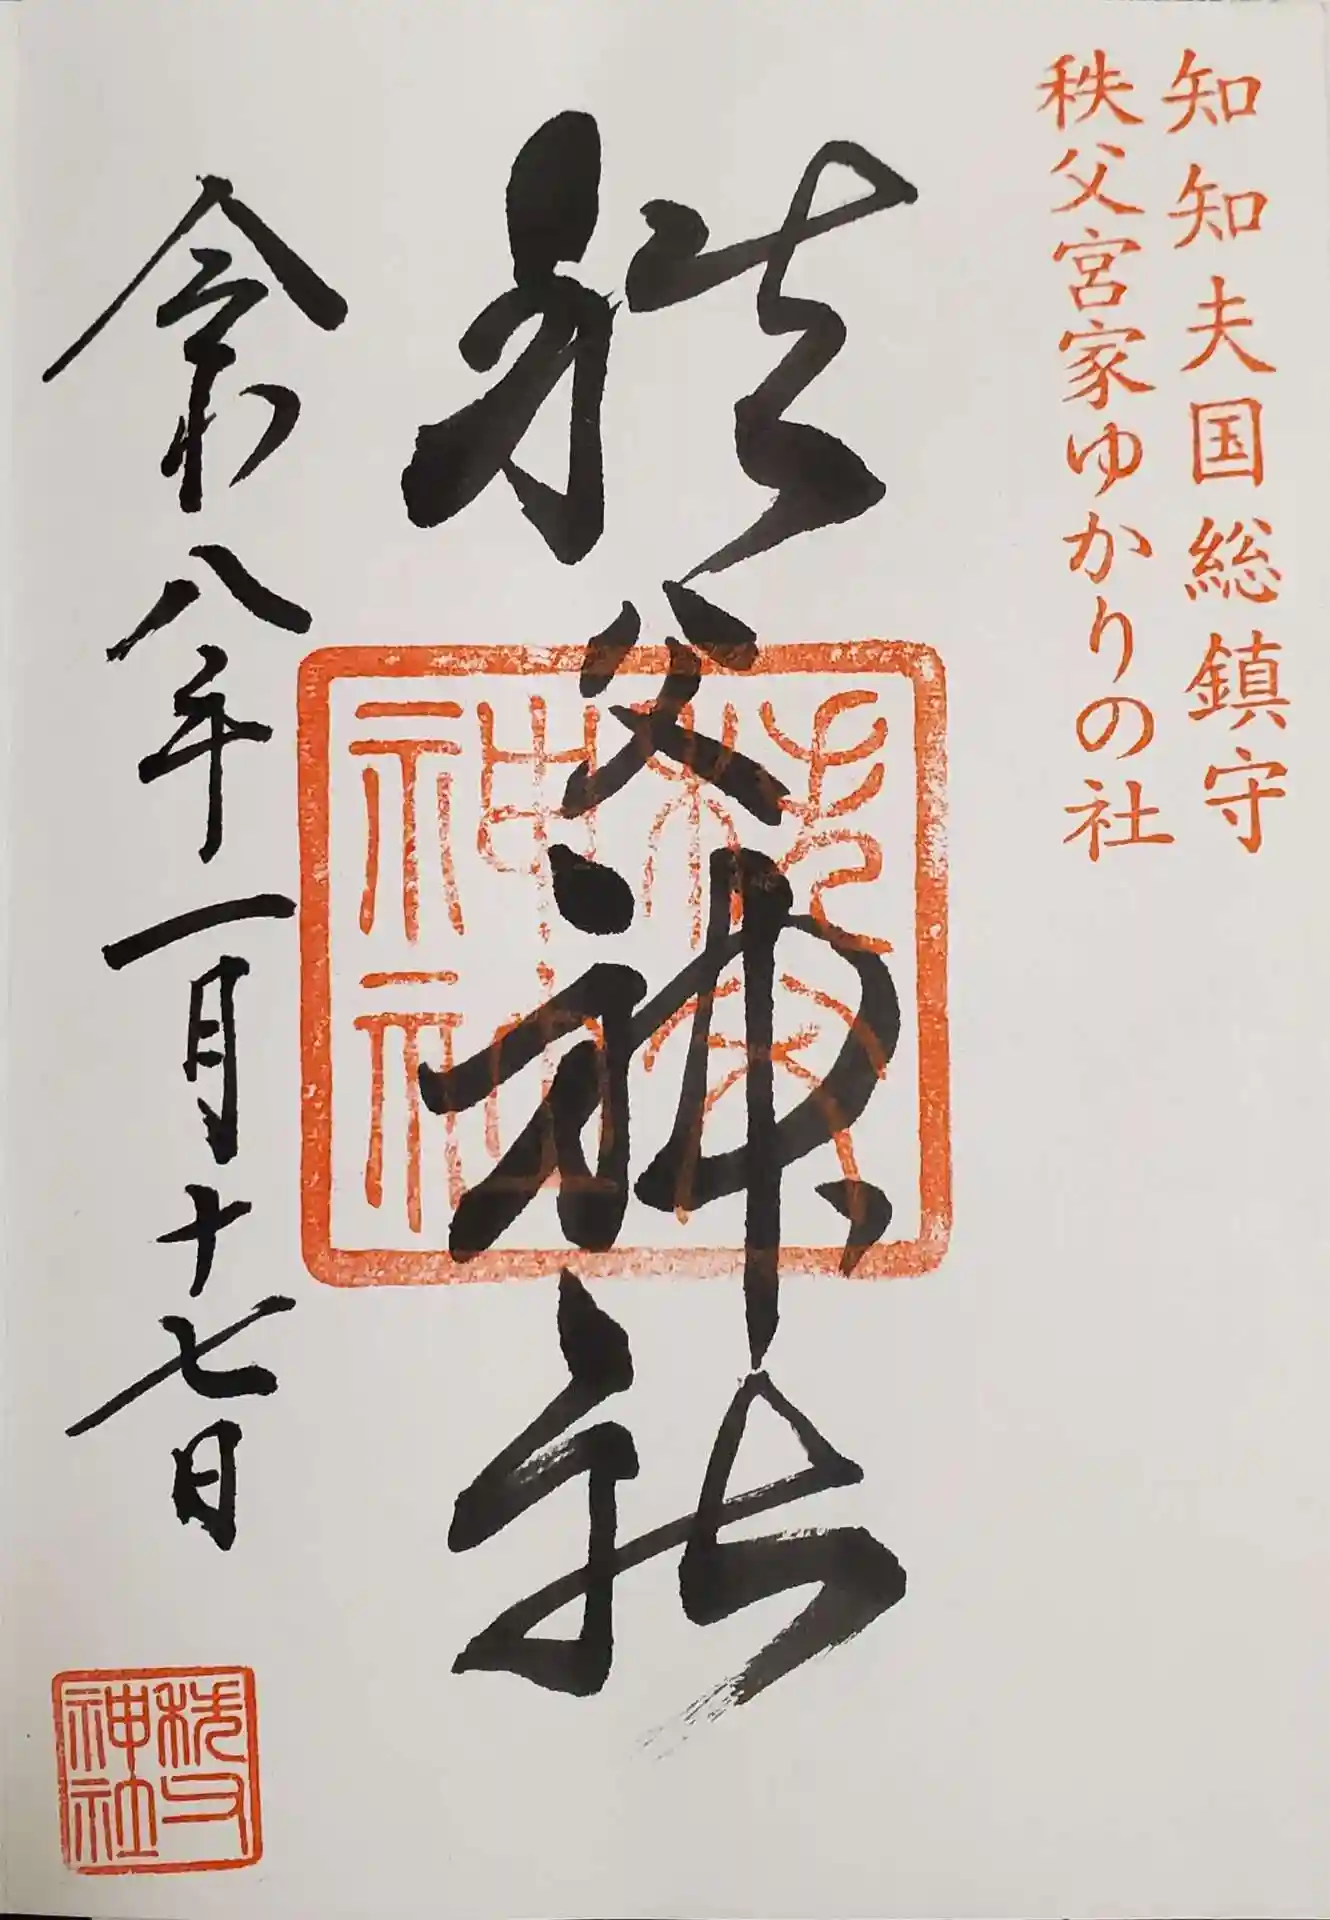 知知夫国総鎮守
秩父宮家ゆかりの社
秩父神社
秩父神社
令和八年一月十七日
秩父神社